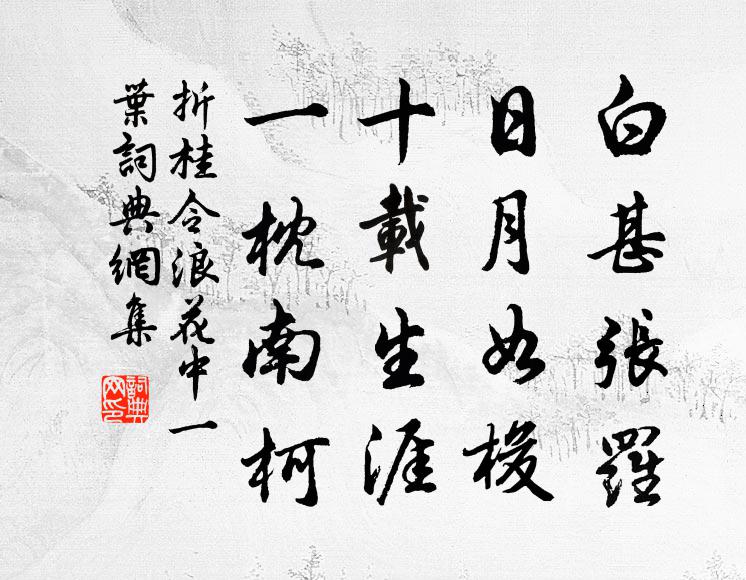 白甚張羅
日月如梭
十載生涯
一枕南柯
折桂令浪花中一
葉詞典網集
詞典
网印